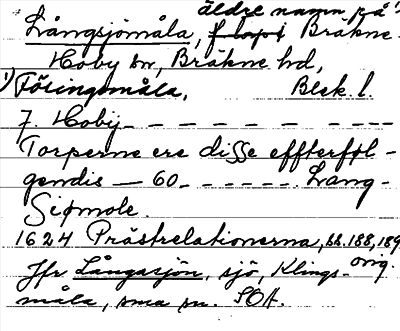 äldre namn på 1)
Långsjömåla, Bräkne-
Hoby sn, Bräkne hd,
1) Tösingsmåla. Blek. l.
7. Hoby - - - - - - - - -
Torperne ere disse effterføl-
gendis — 60 - - - - - - Lang-
Siømole.
1624 Prästrelationerna, bl. 188, 189
orig.
Jfr Långasjön, sjö, Klings-
måla, sma sn. SOA.